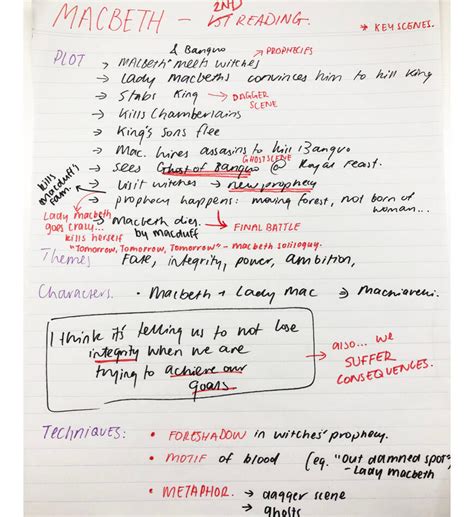 MACBETH - 1ST 2ND READING.
→ KEY SCENES.
& Banquo
→ PROPHECIES
PLOT → Macbeth meets witches
→ Lady Macbeths convinces him to kill King
→ Stabs King → DAGGER SCENE
→ Kills Chamberlains
→ King's sons flee
→ Mac. hires assasins to kill Banquo
GHOST SCENE
→ Sees Ghost of Banquo @ Royal Feast.
kills Macduff's Fam.
→ Visit witches → new prophecy
→ prophecy happens: moving forest, not born of woman...
Lady Macbeth goes crazy... kills herself
→ Macbeth dies by macduff → FINAL BATTLE
"Tomorrow, Tomorrow, Tomorrow" - macbeth soliloquy.
Themes Fate, integrity, power, ambition,
Characters. • Macbeth + Lady Mac ⇒ Machiavelli.
I think it's telling us to not lose
integrity when we are
trying to achieve our
goals
→ also... we
SUFFER
CONSEQUENCES.
Techniques: • FORESHADOW in witches' prophecy.
• MOTIF of blood (eg. "Out damned spot" - Lady macbeth
• METAPHOR. → dagger scene
→ ghosts